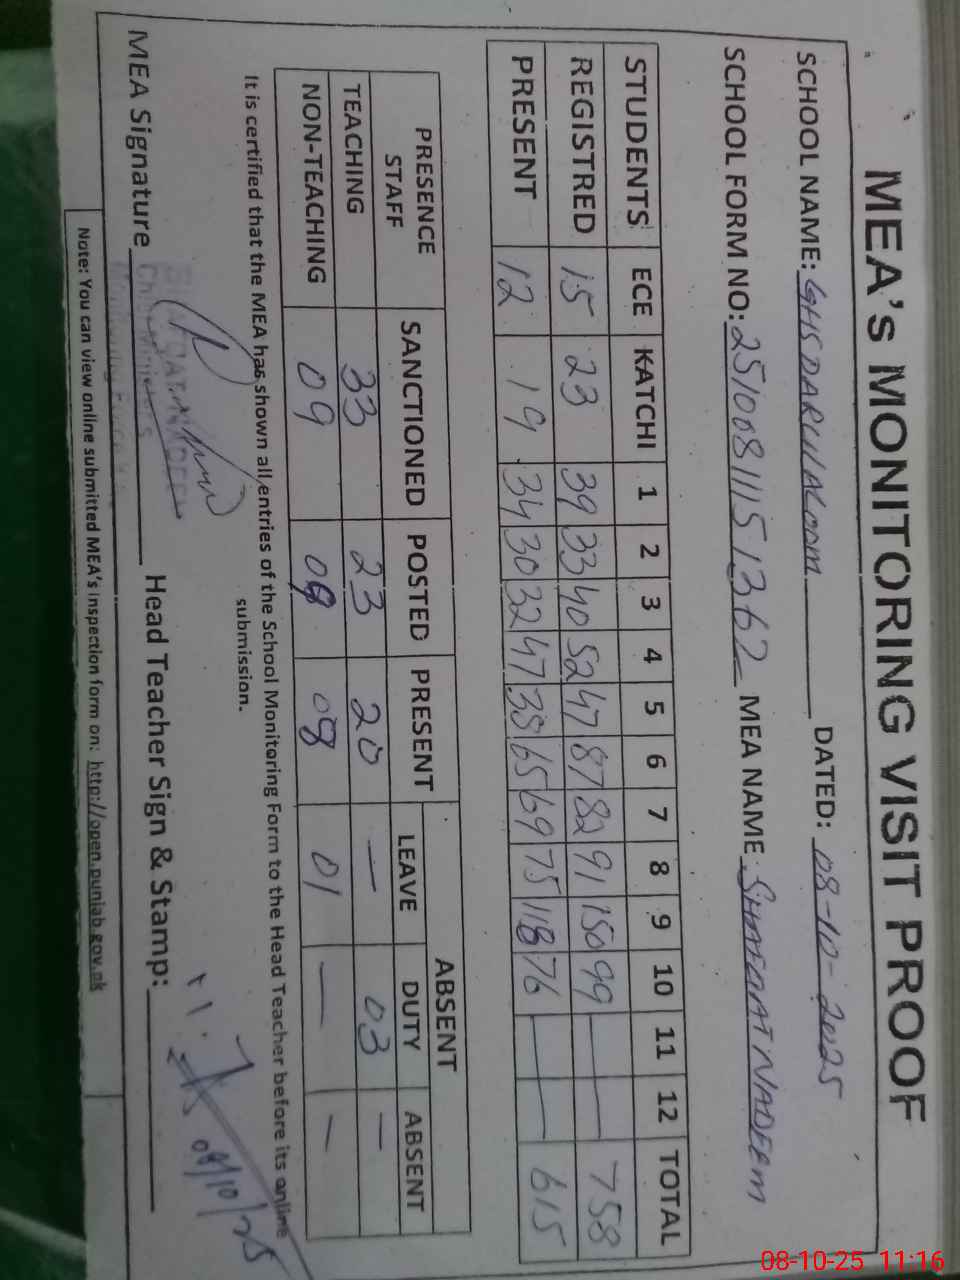 MEA's MONITORING VISIT PROOF
SCHOOL NAME: GHS DARUL ULOOM DATED: 08-10-2025
SCHOOL FORM NO: 25100811151362 MEA NAME SHAFAAT NADEEM
STUDENTS ECE KATCHI 1 2 3 4 5 6 7 8 9 10 11 12 TOTAL
REGISTRED 15 23 39 33 40 52 47 87 82 91 150 99 — — 758
PRESENT 12 19 34 30 32 47 38 65 69 75 118 76 — — 615
PRESENCE STAFF SANCTIONED POSTED PRESENT ABSENT
LEAVE DUTY ABSENT
TEACHING 33 23 20 — 03 —
NON-TEACHING 09 09 08 01 — —
It is certified that the MEA has shown all entries of the School Monitoring Form to the Head Teacher before its online
submission.
MEA Signature Head Teacher Sign & Stamp:
08/10/25
Note: You can view online submitted MEA's inspection form on: http://open.punjab.gov.pk
08-10-25 11:16